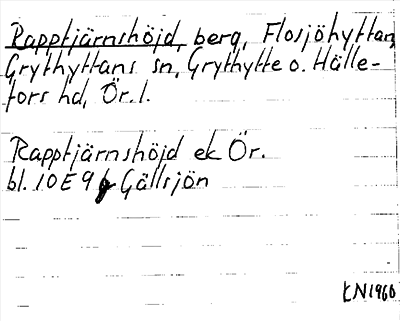 Rapptjärnshöjd, berg, Flosjöhyttan,
Grythyttans sn, Grythytte o. Hälle-
fors hd, Ör. l.
Rapptjärnshöjd ek Ör.
bl. 10E 9 Gällsjön
KN1960